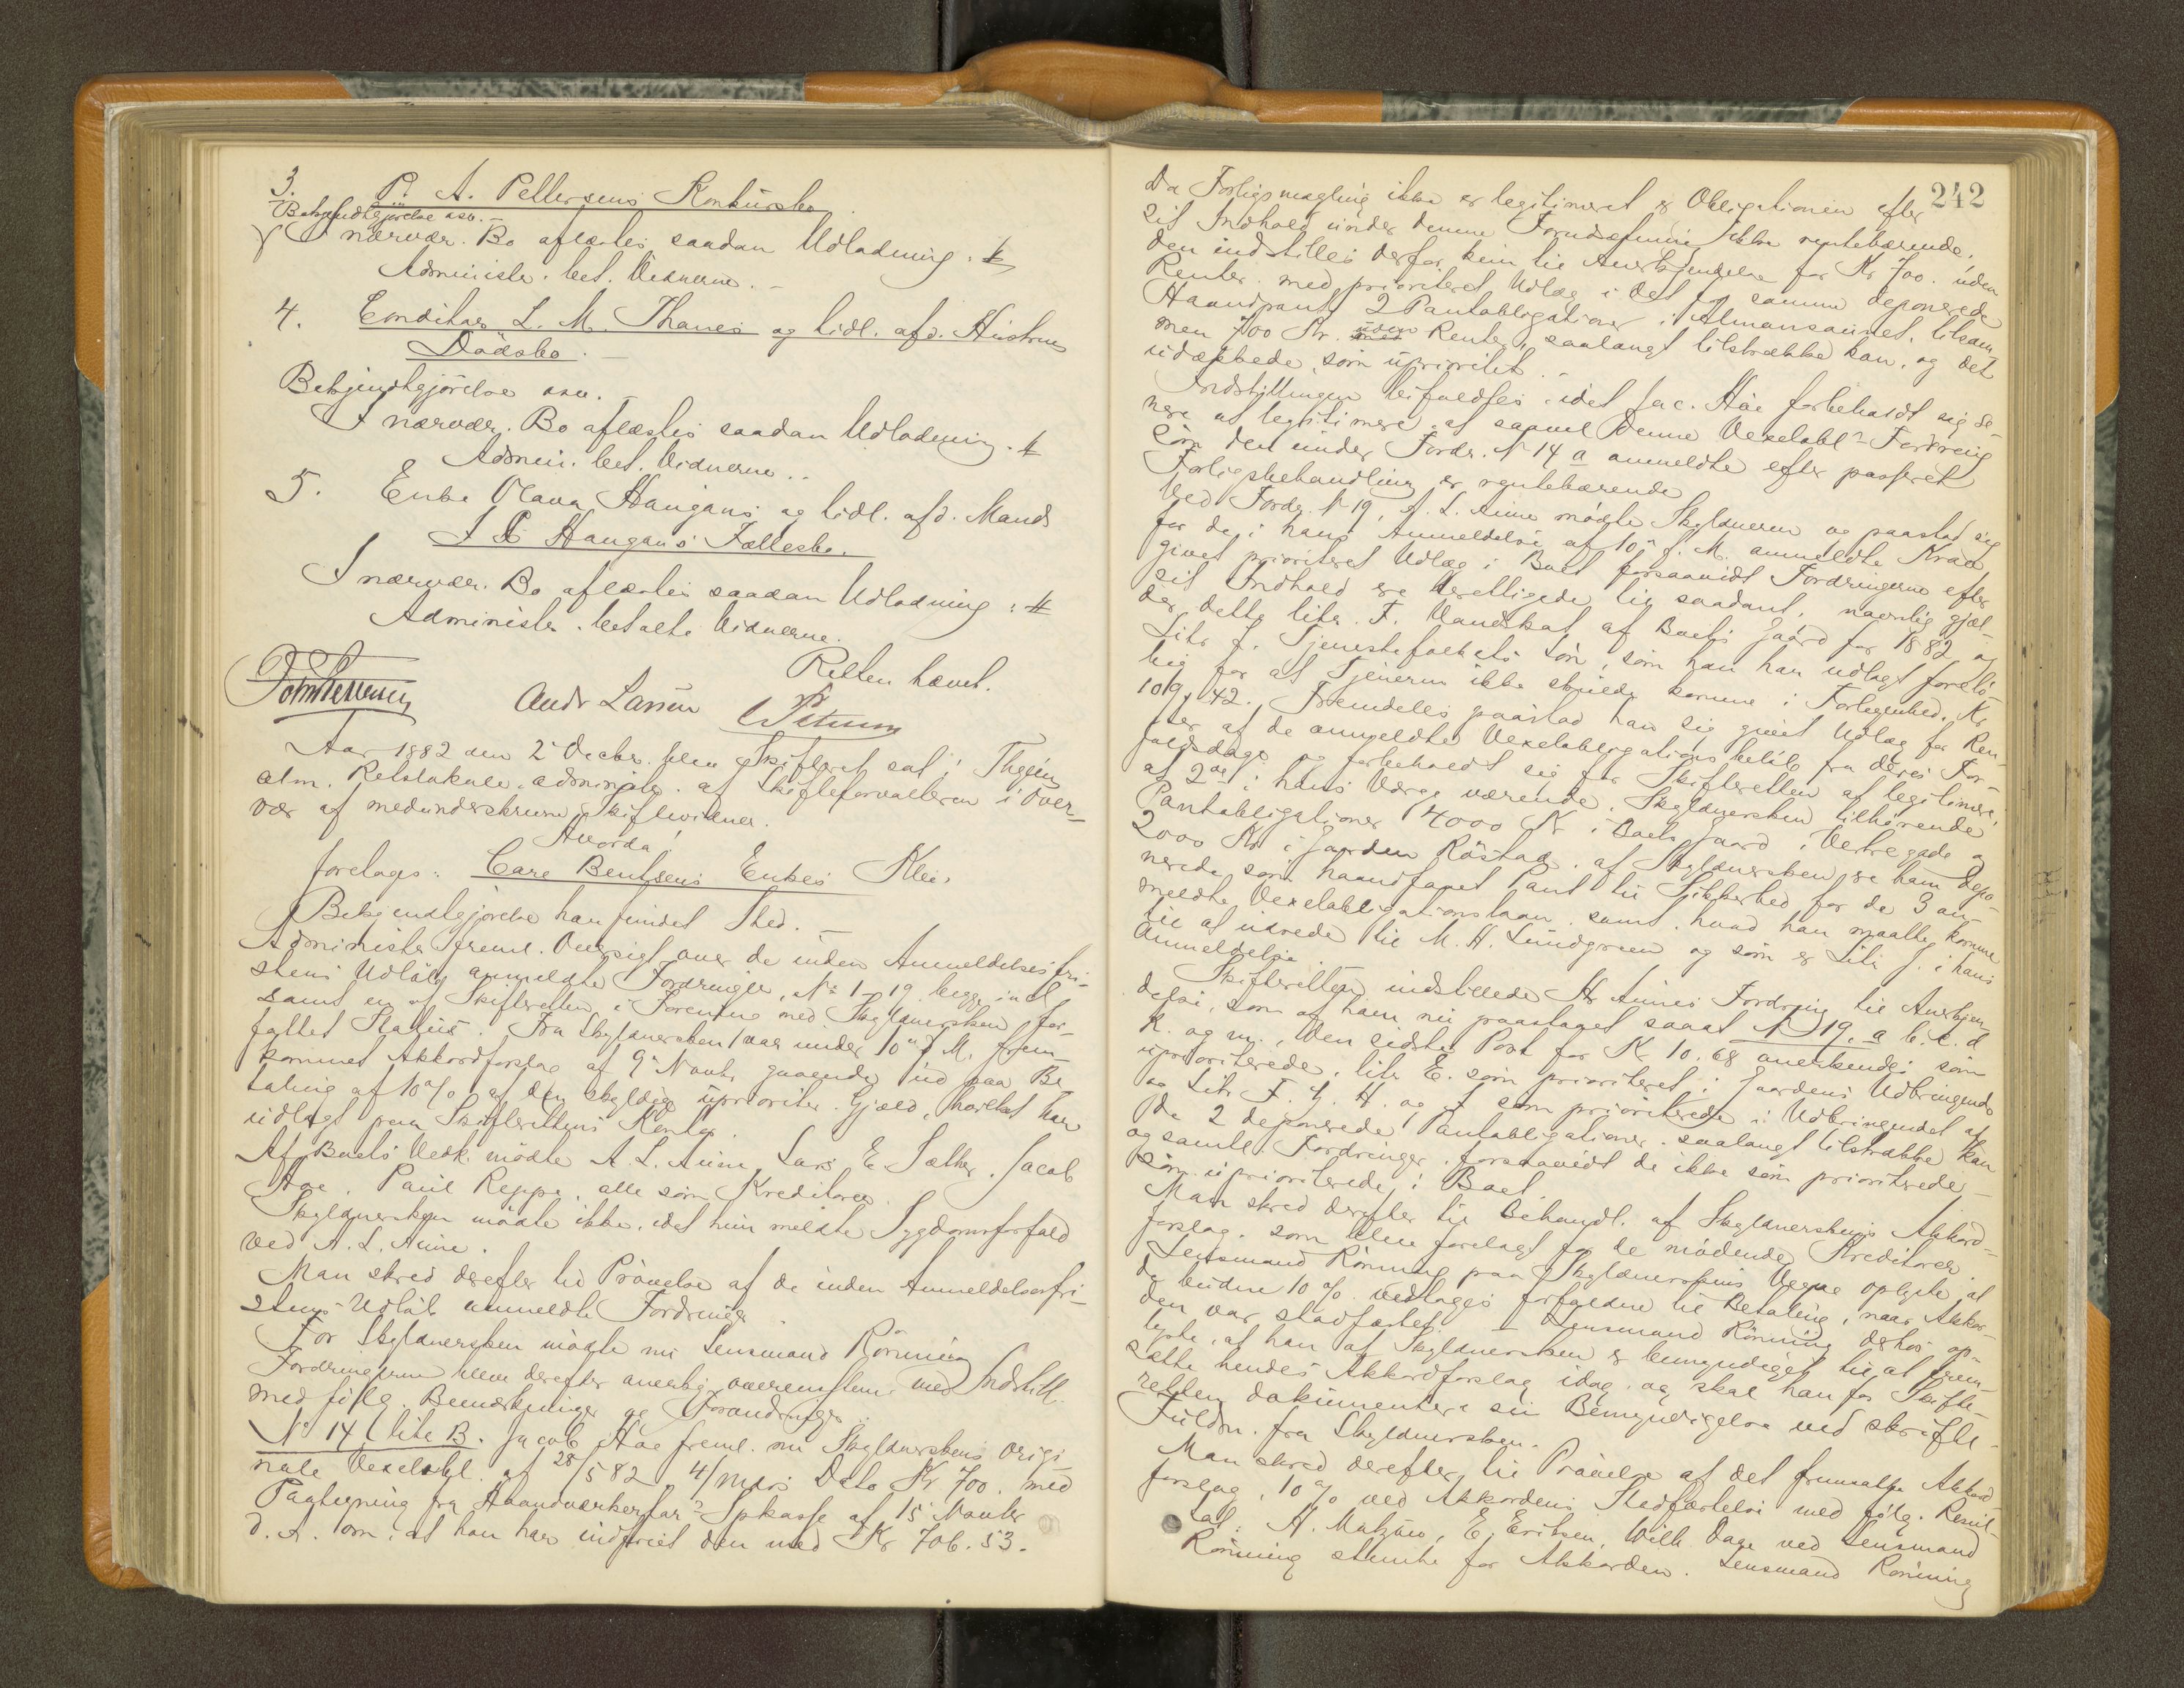 3. P. A. Pettersens Konkursbo
Bekjendtgjørelse osv. –
I nærvær. Bo aflæstes saadan Udlodning. #
Administr. bet. Vidnerne. –
4. Conditor L. M. Thanes og tidl. afd. Hustrues
Dødsbo. –
Bekjendtgjørelse osv. –
I nærvær. Bo aflæstes saadan Udlodning. #
Admin. bet. Vidnerne. .
5. Enke Olava Haugans og tidl. afd. Mands
Haugans Fællesbo.
I nærvær. Bo aflæstes saadan Udlodning: #
Administr. betalte Vidnerne.
Retten hævet.
Andr Larsen
Aar 1882 den 2' Decbr. blev Skifteret sat i Thjems
alm. Retslokale, administr. af Skifteforvalteren i Over-
vær af medunderskrevne Skiftevidner.
Hvorda!
foretages: Care Bentsens Enkes Klei.
Bekjendtgjørelse har fundet Sted. –
Administr. freml. Oversigt over de inden Anmeldelsesfri-
stens Udløb anmeldte Fordringer, No 1–19 begge incl.
samt en af Skifteretten i Forening med Skyldnersken for-
fattet Status. Fra Skyldnersken var under 10' f. M. frem-
kommet Akkordforslag af 9' Novbr. gaaende ud paa Be-
taling af 10 % af den skyldige uprioriter. Gjæld, hvilket har
udlagt paa Skifterettens Kontor.
Af Boets Vedk. mødte A. L. Aune, Lars E. Sæther, Jacob
Hoe, Paul Reppe, alle som Kreditorer.
Skyldnersken mødte ikke, idet hun meldte Sygdomsforfald
ved A. L. Aune.
Man skred derefter til Prøvelse af de inden Anmeldelsesfri-
stens Udløb anmeldte Fordringer.
For Skyldnersken mødte nu Lensmand Rønning
Fordringerne blev derefter anerkj. overensstem. med Indstill.
med følg. Bemærkninger og Forandringer.
No 14 litr B. Jacob Hoe freml. nu Skyldnerskens origi-
nale Vexelobl. af 28/5 82, 4/mdrs Dato Kr 700. med
Paategning fra Haandværkerfor? Spkasse af 15' Novbr
d. A. om, at han har indfriet den med Kr 706. 53.
242
Da Forligsmægling ikke er legitimeret er Obligationen efter
sit Indhold under denne Forudsætning ikke rentebærende,
den indstilles derfor kun til Anerkjendelse for Kr 700. uden
Renter med prioriteret Udlæg i det for samme deponerede
Haandpant 2 Pantobligationer i Almansaunet, tilsam-
men 700 Kr. uden Renter, saalangt tilstrække kan, og det
udækkede som uprioritet. –
Indstillingen bifaldtes, idet Jac. Hoe forbeholdt sig se-
nere at legitimere, at saavel denne Vexelobl? Fordring
som den under Fordr. No 14 a anmeldte efter passeret
Forligsbehandling er rentebærende
Ved Fordr. No 19, A. L. Aune mødte Skyldneren og paastod sig
for de i hans Anmeldelse af 10' f. M. anmeldte Krav
givet prioriteret Udlæg i Boet forsaavidt Fordringerne efter
sit Indhold ere berettigede til saadant, navnlig gjæl-
der dette litr. F. Vandskat af Boets Gaard for 1882 og
Litr J. Tjenestefolkets Løn, som han har udlagt foreløb-
ig for at Tjenerne ikke skulde komme i Forlegenhed, Kr
109, 42. Fremdeles paastod han sig givet Udlæg for Ren-
ter af de anmeldte Vexelobligations beløb fra deres For-
faldsdage og forbeholdt sig for Skifteretten at legitimere,
at 2de i hans Værge værende, Skyldnersken tilhørende
Pantobligationer 4000 Kr i Boets Gaard i Vestregade og
2000 Kr i Gaarden Røstad, af Skyldnersken er ham depo-
nerede som haandfanet Pant til Sikkerhed for de 3 an-
meldte Vexelobligationslaan, samt, hvad han maatte komme
til at udrede til M. H. Lundgreen og som er Litr J. i hans
Anmeldelse.
Skifteretten indstillede Hr Aunes Fordring til Anerkjen-
delse, som af ham nu paastaaet saaat No 19, a b. c. d
K. og m., den sidste Post for Kr 10. 68 anerkjendes som
uprioriterede, litr E. som prioriteret i Gaardens Udbringende
og Litr F. G. H. og I som prioriterede i Udbringendet af
de 2 deponerede Pantobligationer, saalangt tilstrække kan
og samtl. Fordringer, forsaavidt de ikke som prioriterede –
som uprioriterede i Boet.
Man skred derefter til Behandl. af Skyldnerskens Akkord-
forslag, som blev forelagt for de mødende Kreditorer
Lensmand Rønning paa Skyldnerskens Vegne oplyste, at
de budne 10 % vedtages forfaldne til Betaling, naar Akkor-
den var stadfæstet. – Lensmand Rønning derhos op-
lyste, at han af Skyldnersken er bemyndiget til at frem-
sætte hendes Akkordforslag idag, og skal han for Skifte-
retten dokumentere sin Bemyndigelse ved skriftl.
Fuldm. fra Skyldnersken.
Man skred derefter til Prøvelse af det fremsatte Akkord-
forslag, 10 % ved Akkordens Stadfæstelse med følg. Resul-
tat: H. Matzow, E. Eriksen, Wilh. Dage ved Lensmand
Rønning stemte for Akkorden. Lensmand Rønning